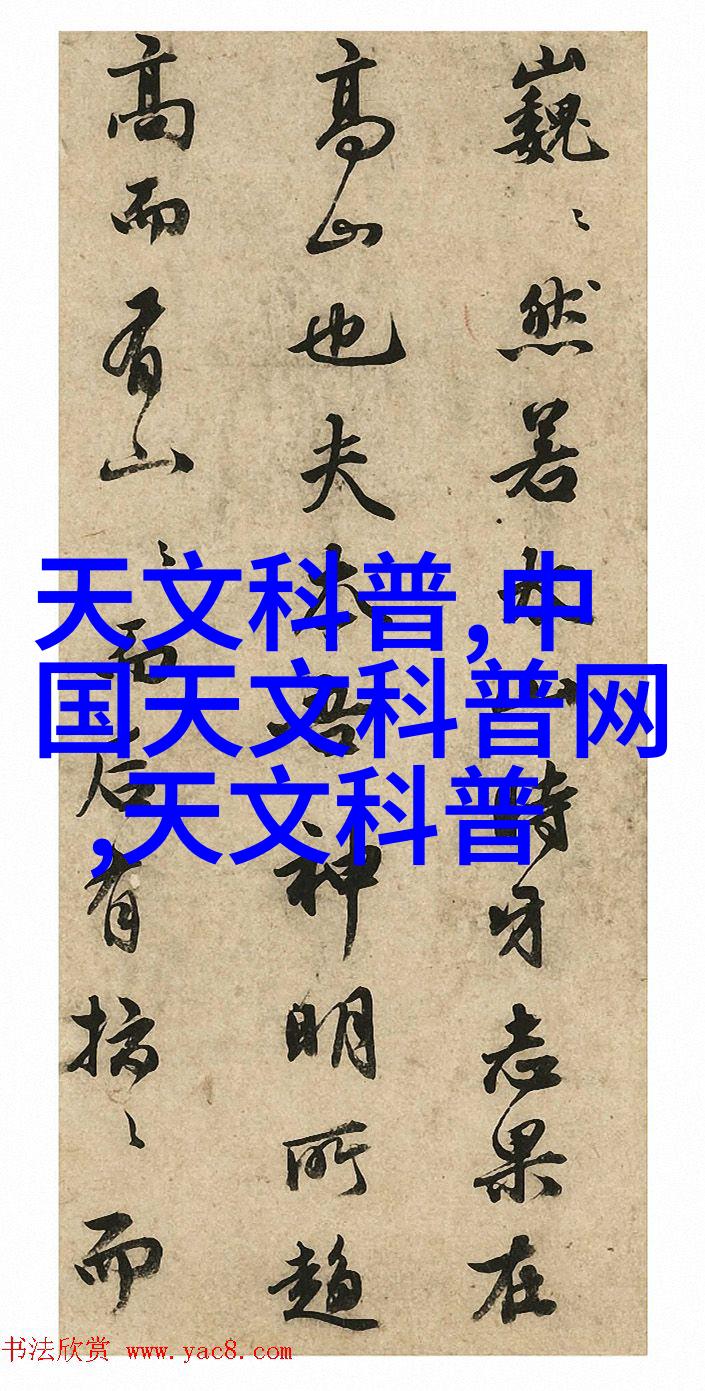 巍〻然若山時牙志果在
高山也夫本吾神明所趨
高而有山〻后有〻而
天文科普,中
国天文科普网
,天文科普
书法欣赏 www.yac8.com